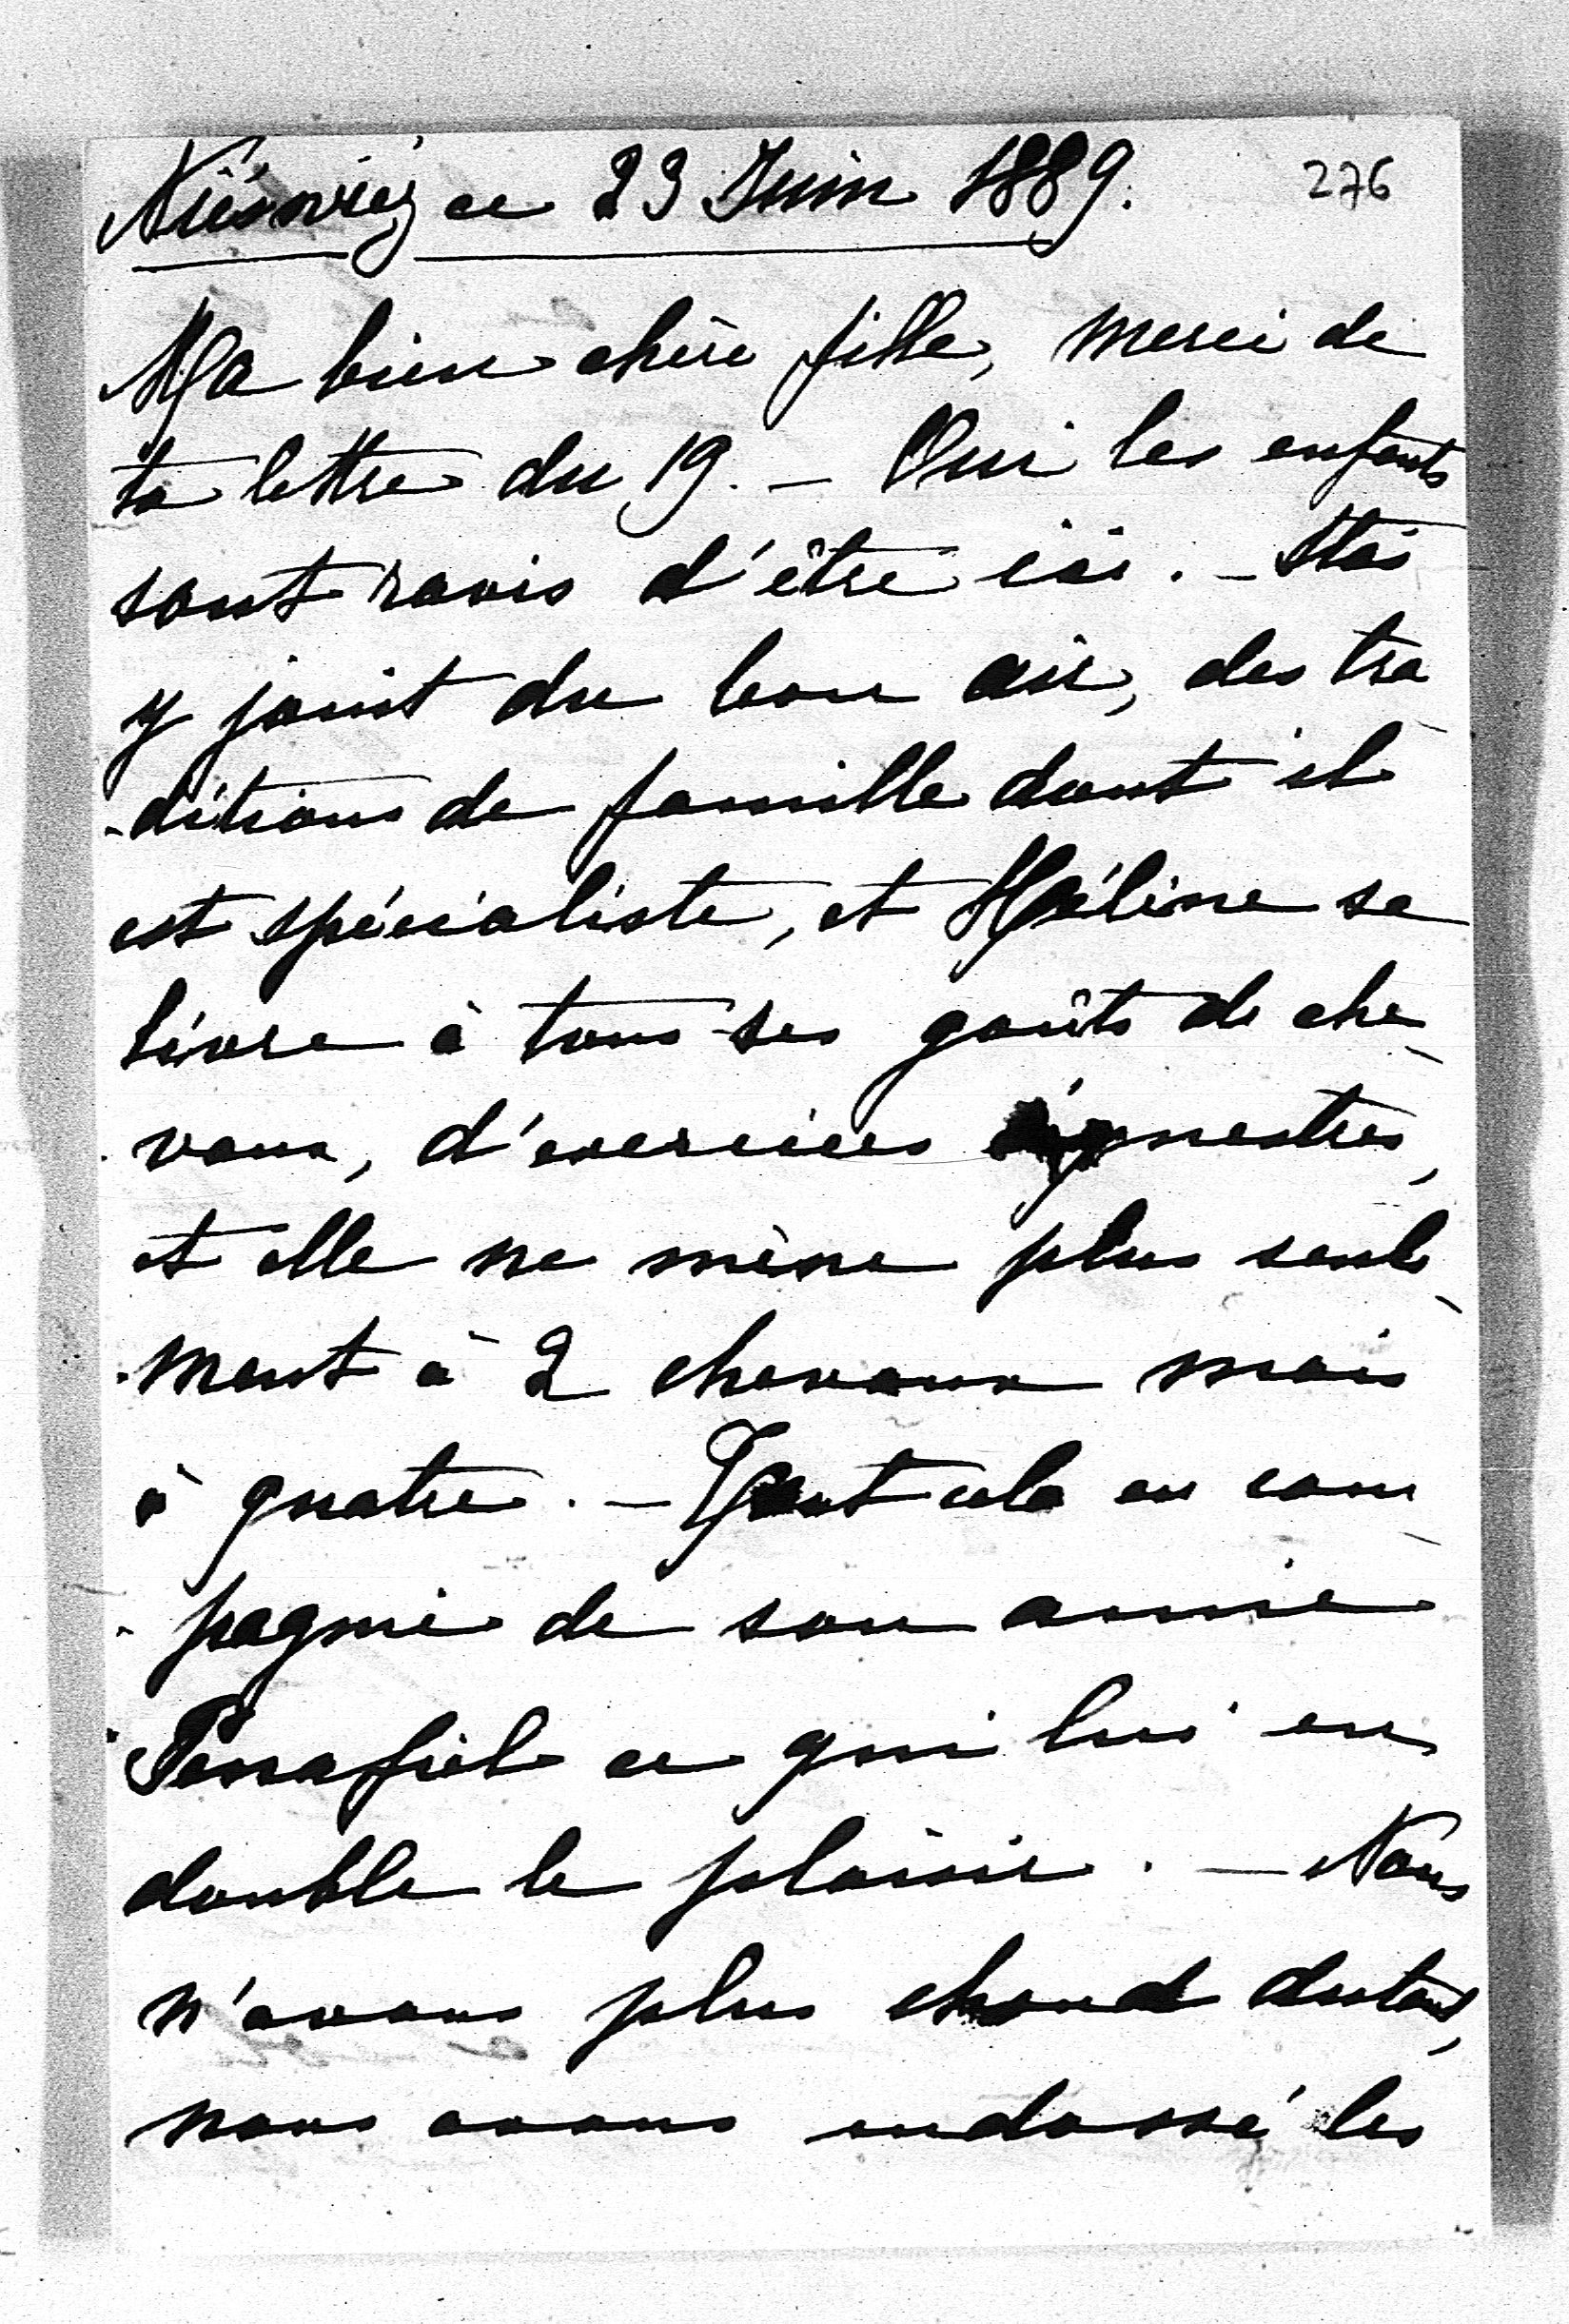 Nieśwież ce 23 Juin 1889.
276
Ma bien chère fille, merci de
ta lettre du 19. – Oui les enfants
sont ravis d'être ici. – Staś
y jouit du bon air, des tra
-ditions de famille dont il
est spécialiste, et Héline se
livre à tous ses goûts de che
vaux, d'exercices équestres,
et elle ne mène plus seule
-ment à 2 chevaux mais
à quatre. – Tout cela en com
-pagnie de son amie
Penafiel ce qui lui en
double le plaisir. – Nous
n'avons plus chaud du tout,
nous avons endossé les